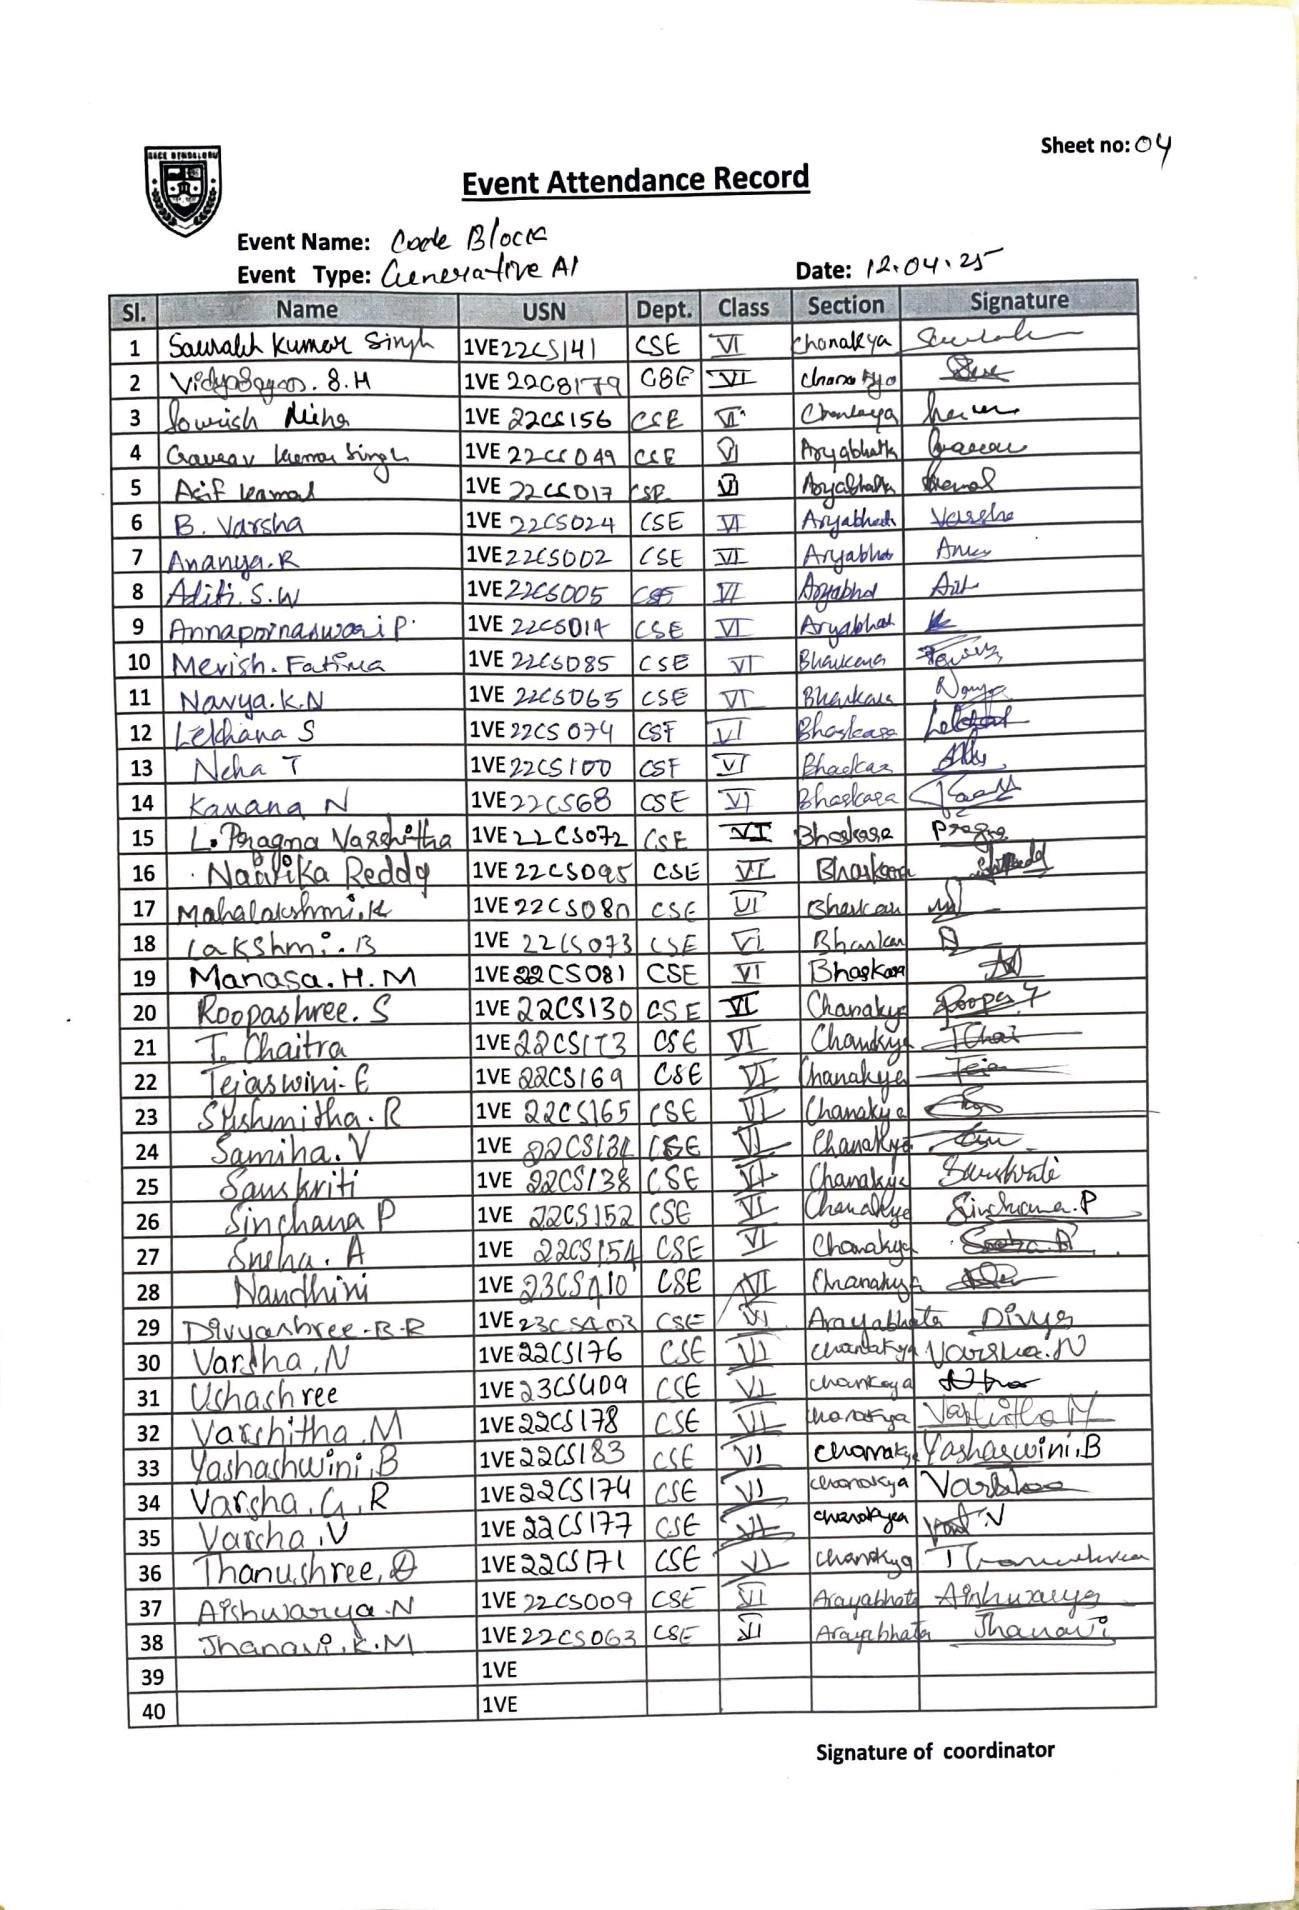 SACE BENGALURU
Sheet no: 04
Event Attendance Record
Event Name: Code Block
Event Type: Generative AI Date: 12.04.25
Sl. Name USN Dept. Class Section Signature
1 Saurabh Kumar Singh 1VE22CS141 CSE VI Chanakya
2 Vidyasagar. S.H 1VE 22CS179 CSE VI
3 Sourish 1VE 22CS156 CSE VI
4 Gaurav Kumar Singh 1VE 22CS049 CSE VI Aryabhatta
5 Asif Kamal 1VE 22CS017 CSE VI Aryabhatta Kamal
6 B. Varsha 1VE 22CS024 CSE VI Varsha
7 Ananya.R 1VE22CS002 CSE VI Aryabhat
8 Aditi.S.W 1VE22CS005 CSE VI
9 Annapornaswari P. 1VE 22CS014 CSE VI Aryabhat
10 Merish.Fatima 1VE 22CS085 CSE VI Bhaskara
11 Navya.K.N 1VE 22CS065 CSE VI Bhaskara Navya
12 Lekhana S 1VE 22CS 074 CSE VI Bhaskara
13 Neha T 1VE 22CS100 CSE VI
14 Kanana N 1VE 22CS68 CSE VI Bhaskara
15 L. Pragna Varshitha 1VE 22CS072 CSE VI Bhaskara Pragna
16 Naavika Reddy 1VE 22CS095 CSE VI Bhaskara
17 Mahalakshmi.K 1VE 22CS080 CSE VI
18 Lakshmi.B 1VE 22CS073 CSE VI Bhaskar
19 Manasa.H.M 1VE 22CS081 CSE VI Bhaskara
20 Roopashree.S 1VE 22CS130 CSE VI Chanakya
21 T. Chaitra 1VE 22CS173 CSE VI Chanakya
22 Tejaswini.E 1VE 22CS169 CSE VI Chanakya
23 Sushmitha.R 1VE 22CS165 CSE VI Chanakya
24 Samiha.V 1VE CSE VI Chanakya
25 Sanskriti 1VE 22CS138 CSE VI Chanakya Sanskriti
26 Sinchana P 1VE 22CS152 CSE VI Chanakya Sinchana.P
27 Sneha.A 1VE 22CS154 CSE VI Chanakya
28 Nandhini 1VE 23CS410 CSE VI Chanakya
29 Divyashree.B.R 1VE 23CS403 CSE VI Arayabhata Divya
30 Varsha.N 1VE 22CS176 CSE VI Chanakya Varsha.N
31 Ushashree 1VE 23CS409 CSE VI Chankaya
32 Varshitha.M 1VE 22CS178 CSE VI Chanakya Varshitha M
33 Yashashwini.B 1VE 22CS183 CSE VI Yashaswini.B
34 Varsha.G.R 1VE 22CS174 CSE VI Chanakya
35 Varsha.V 1VE 22CS177 CSE VI
36 Thanushree.D 1VE 22CS171 CSE VI
37 Aishwarya.N 1VE 22CS009 CSE VI Arayabhata Aishwarya
38 Jhanavi.K.M 1VE 22CS063 CSE VI Arayabhata Jhanavi
39 1VE
40 1VE
Signature of coordinator